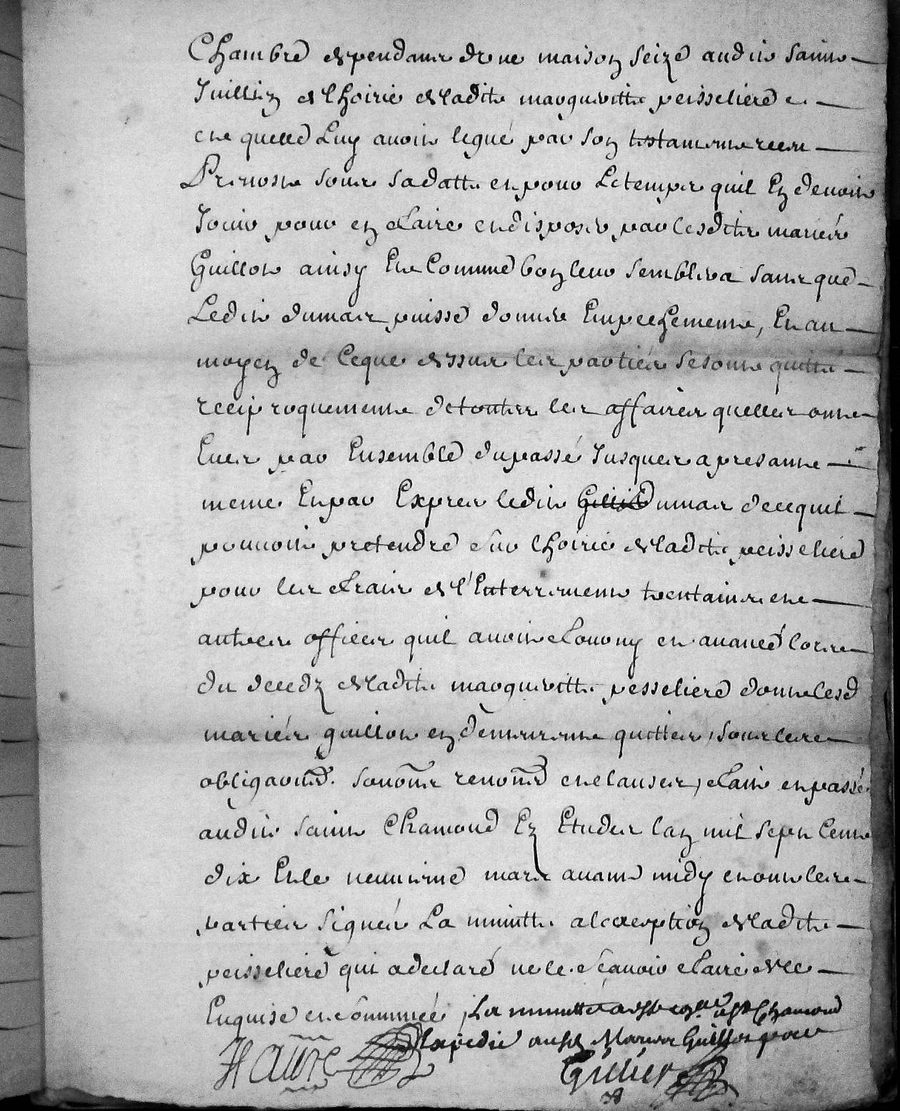 Chambre dependant dune maison size audit saint
Jullien de lhoirie de ladite margueritte peisseliere
et quelle Luy avoit legué par son testament recu
sous sa datte et pour Letemps quil En devoit
Jouir pour en faire et disposer par lesdits mariés
Guillon ainsy Et Comme bon leur semblera sans que
Ledit dumas puisse donner Empechement, Et au
moyen de Ceque dessus les parties se sont quitté
reciproquement de toutes les affaires quelles ont
Eues par Ensemble du passé Jusques apresant
meme Et par Exprès ledit dumas de ce quil
pouvoit pretendre sur lhoirie de ladite peisseliere
pour les frais de l'Enterrement trentaine et
autres offices quil avoit fourny et avancé lors
du deceds de ladite margueritte pesseliere dont lesd
mariés guillon en demeurent quittes, sous les
obligaons. renons et clauses, fait et passé
audit saint Chamond En Etude lan mil sept Cent
dix Et le neuvieme mars avant midy et ont les
parties signés La minutte a lexception de ladite
peisseliere qui a declaré ne le scavoir faire de ce
Enquise et sommée, La minutte St Chamond
Expedié auxd Mariés Guillon